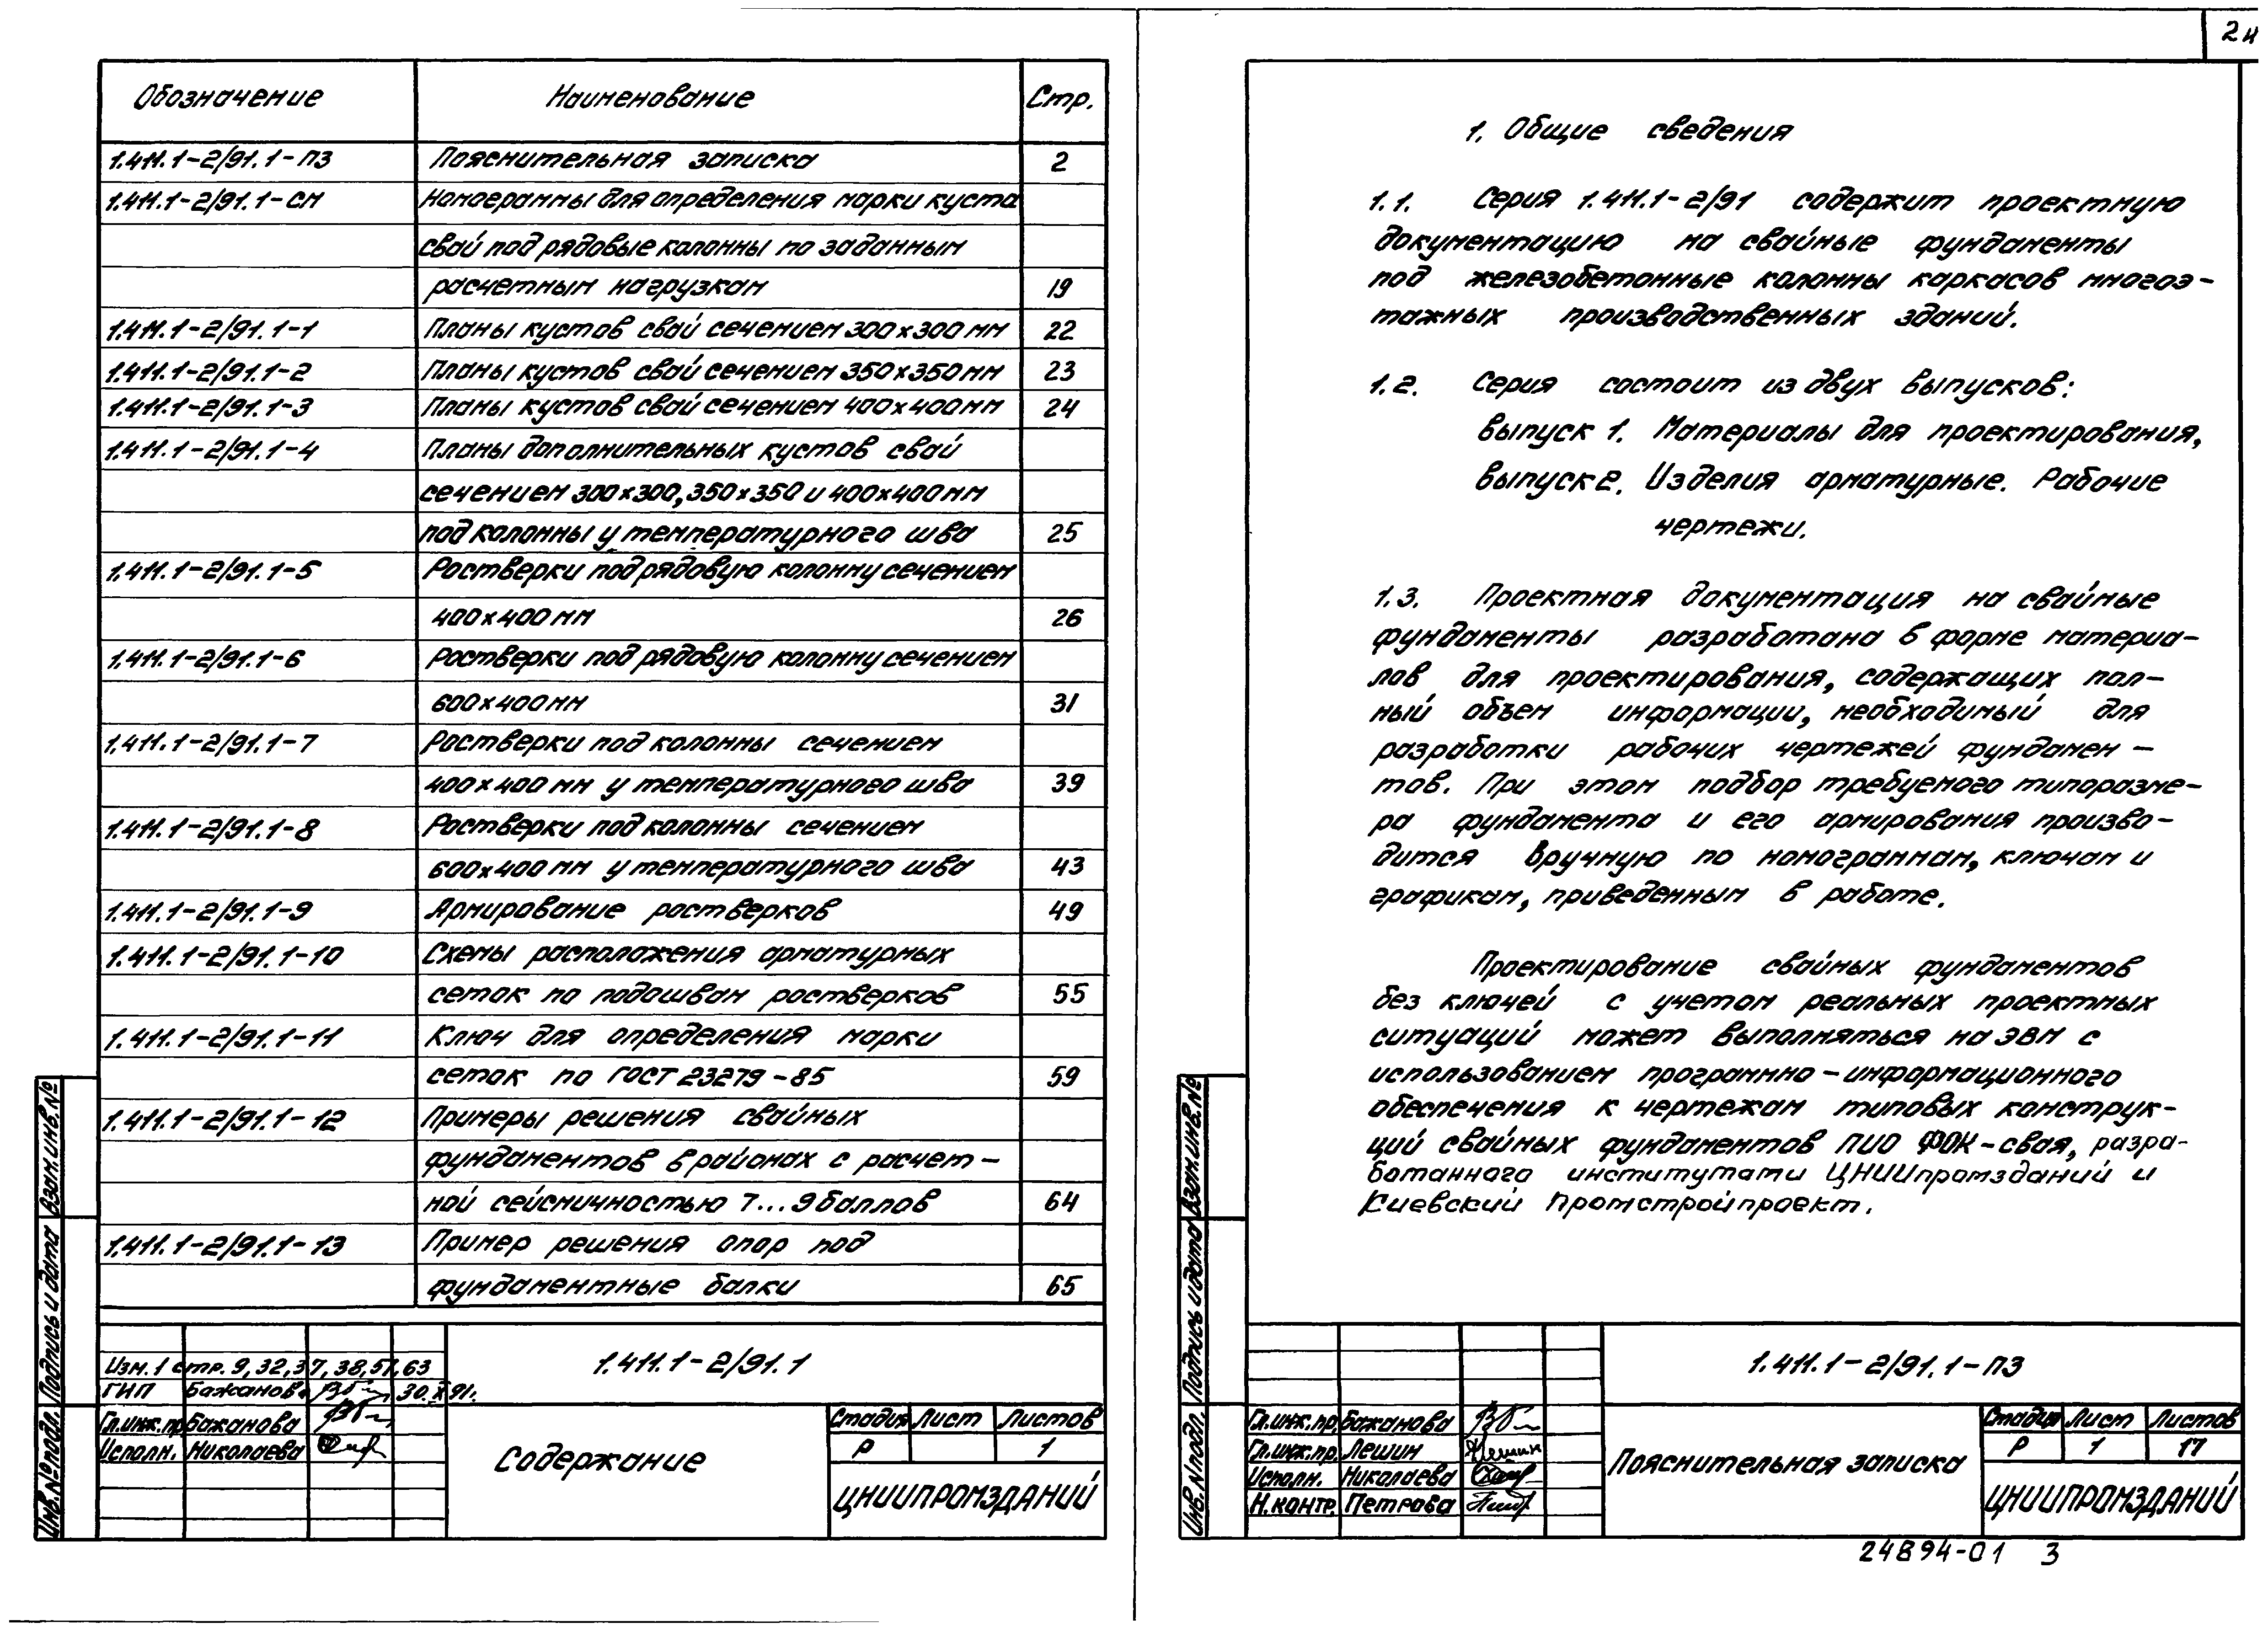 Обозначение Наименование Стр.
1.411.1-2/91.1-ПЗ Пояснительная записка 2
1.411.1-2/91.1-СМ Номограммы для определения марки куста
свай под рядовые колонны по заданным
расчетным нагрузкам 19
1.411.1-2/91.1-1 Планы кустов свай сечением 300×300 мм 22
1.411.1-2/91.1-2 Планы кустов свай сечением 350×350 мм 23
1.411.1-2/91.1-3 Планы кустов свай сечением 400×400 мм 24
1.411.1-2/91.1-4 Планы дополнительных кустов свай
сечением 300×300, 350×350 и 400×400 мм
под колонны у температурного шва 25
1.411.1-2/91.1-5 Ростверки под рядовую колонну сечением
400×400 мм 26
1.411.1-2/91.1-6 Ростверки под рядовую колонну сечением
600×400 мм 31
1.411.1-2/91.1-7 Ростверки под колонны сечением
400×400 мм у температурного шва 39
1.411.1-2/91.1-8 Ростверки под колонны сечением
600×400 мм у температурного шва 43
1.411.1-2/91.1-9 Армирование ростверков 49
1.411.1-2/91.1-10 Схемы расположения арматурных
сеток по подошвам ростверков 55
1.411.1-2/91.1-11 Ключ для определения марки
сеток по ГОСТ 23279-85 59
1.411.1-2/91.1-12 Примеры решения свайных
фундаментов в районах с расчет-
ной сейсмичностью 7...9 баллов 64
1.411.1-2/91.1-13 Пример решения опор под
фундаментные балки 65
Изм.1 стр. 9, 32, 37, 38, 57, 63
ГИП Бажанова 30.X 91г.
Гл.инж.пр Бажанова
Исполн. Николаева
1.411.1-2/91.1
Содержание
Стадия Лист Листов
Р 1
ЦНИИПРОМЗДАНИЙ
Инв.№подл. Подпись и дата Взам.инв.№
2
1. Общие сведения
1.1. Серия 1.411.1-2/91 содержит проектную
документацию на свайные фундаменты
под железобетонные колонны каркасов многоэ-
тажных производственных зданий.
1.2. Серия состоит из двух выпусков:
выпуск 1. Материалы для проектирования,
выпуск 2. Изделия арматурные. Рабочие
чертежи.
1.3. Проектная документация на свайные
фундаменты разработана в форме материа-
лов для проектирования, содержащих пол-
ный объем информации, необходимый для
разработки рабочих чертежей фундамен-
тов. При этом подбор требуемого типоразме-
ра фундамента и его армирования произво-
дится вручную по номограммам, ключам и
графикам, приведенным в работе.
Проектирование свайных фундаментов
без ключей с учетом реальных проектных
ситуаций может выполняться на ЭВМ с
использованием программно-информационного
обеспечения к чертежам типовых конструк-
ций свайных фундаментов ПИО ФОК-свая, разра-
ботанного институтами ЦНИИпромзданий и
Киевский Промстройпроект.
Инв.№подл. Подпись и дата Взам.инв.№
Гл.инж.пр. Бажанова
Гл.инж.пр. Лешин
Исполн. Николаева
Н.контр. Петрова
1.411.1-2/91.1-ПЗ
Пояснительная записка
Стадия Лист Листов
Р 1 17
ЦНИИПРОМЗДАНИЙ
24894-01 3